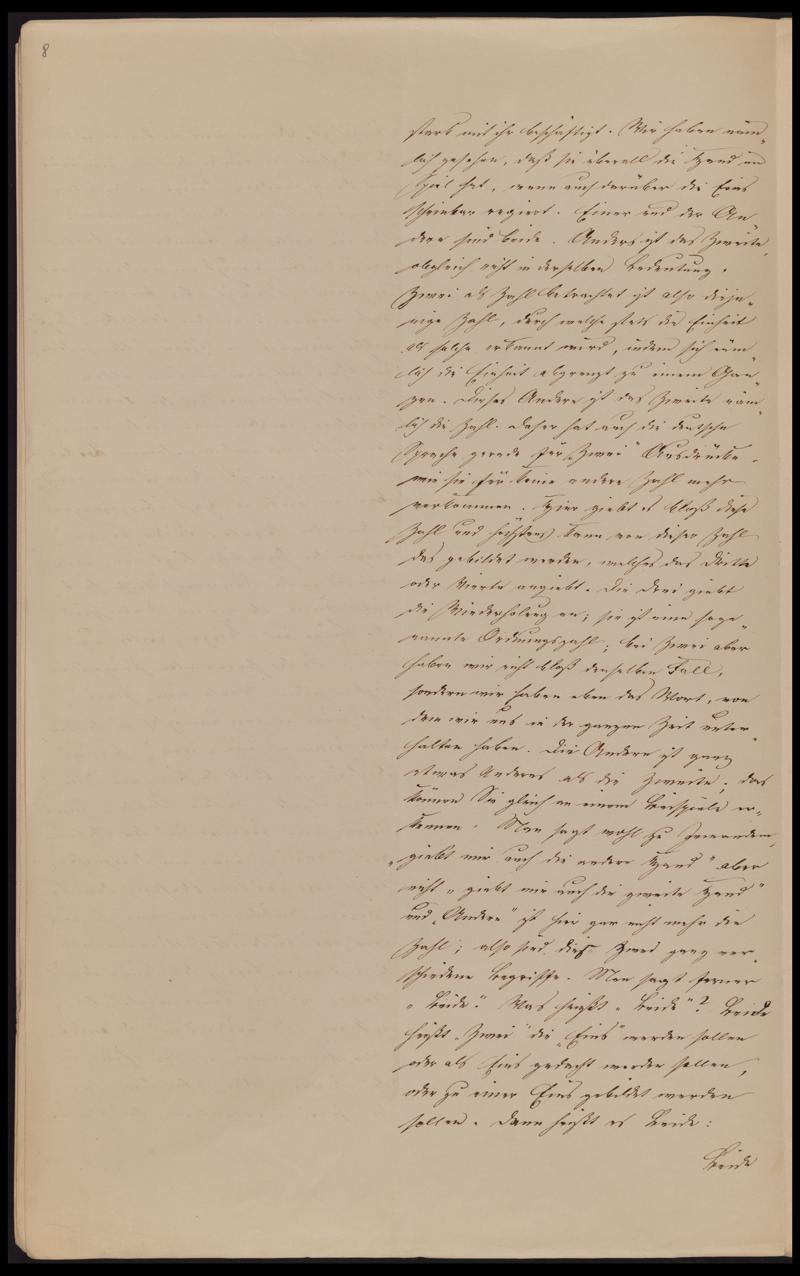 8
stark mit ihr beschäftigt. Wir haben näm„
lich gesehen, daß sie überall die Hand im
Spiel hat, wenn auch darüber die Eins
scheinbar regiert. Einer und der An
dere sind beide. Anders ist das Zweite,
obgleich nicht in derselben Bedeutung.
Zwei als Zahl betrachtet ist also dieje„
nige Zahl, durch welche stets die Einheit
als solche erkannt wird, indem sich näm„
lich die Einheit abgrenzt zu einem Gan„
zen. Dieses Andere ist das Zweite näm„
lich die Zahl. Daher hat auch die deutsche
Sprache gerade für „Zwei“ Ausdrücke,
wie sie für keine andere Zahl mehr
vorkommen. Hier giebt es bloß diese
Zahl und höchstens kann von dieser Zahl
das gebildet werden, welches das Dritte
oder Vierte angiebt. Die Drei giebt
die Wiederholung an; sie ist eine soge„
nannte Ordnungszahl; bei Zwei aber
haben wir nicht bloß denselben Fall,
sondern wir haben eben das Wort, von
dem wir uns in der ganzen Zeit unter„
halten haben. Die Andere ist ganz
etwas Anderes als die Zweite; das
können Sie gleich an einem Beispiele er„
kennen. Man sagt wohl zu Jemandem,
„giebt mir auch die andere Hand“ aber
nicht „giebt mir auch die zweite Hand“
und „Andere“ ist hier gar nicht mehr die
Zahl; also sind dies zwei ganz ver„
schiedene Begriffe. Man sagt ferner
„Beide“. Was heißt „Beide“? Beide
heißt „Zwei“ die „Eins“ werden sollen
oder als Eins gedacht werden sollen,
oder zu einer Eins gebildet werden
sollen. Dann heißt es Beide:
Beide